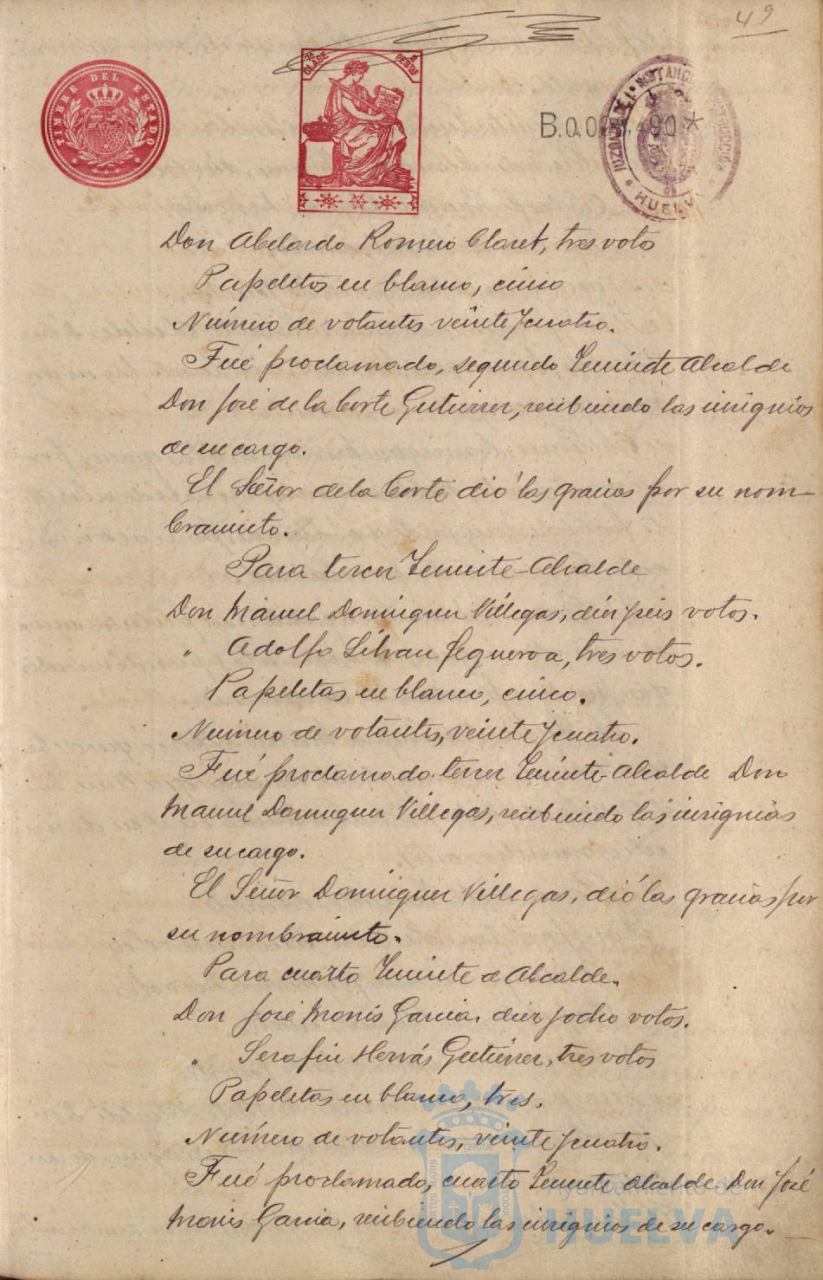 49
TIMBRE DEL ESTADO
CLASE
B.0.0 490*
JUZGADO DE 1ª INSTANCIA
HUELVA
Don Abelardo Romero Claret, tres voto
Papeletas en blanco, cinco
Número de votantes veinte y cuatro.
Fué proclamado, segundo Teniente Alcalde
Don José de la Corte Gutierrez, recibiendo las insignias
de su cargo.
El Señor de la Corte dió las gracias por su nom-
bramiento.
Para tercer Teniente-Alcalde
Don Manuel Dominguez Villegas, diez y seis votos.
" Adolfo votos, tres votos.
Papeletas en blanco, cinco.
Número de votantes, veinte y cuatro.
Fué proclamado tercer Teniente-Alcalde Don
Manuel Dominguez Villegas, recibiendo las insignias
de su cargo.
El Señor Dominguez Villegas, dió las gracias por
su nombramiento.
Para cuarto Teniente de Alcalde.
Don José Monis Garcia, diez y ocho votos.
" Serafin Hervás Gutierrez, tres votos
Papeletas en blanco, tres.
Número de votantes, veinte y cuatro.
Fué proclamado, cuarto Teniente Alcalde Don José
Monis Garcia, recibiendo las insignias de su cargo.
Ayuntamiento de
HUELVA